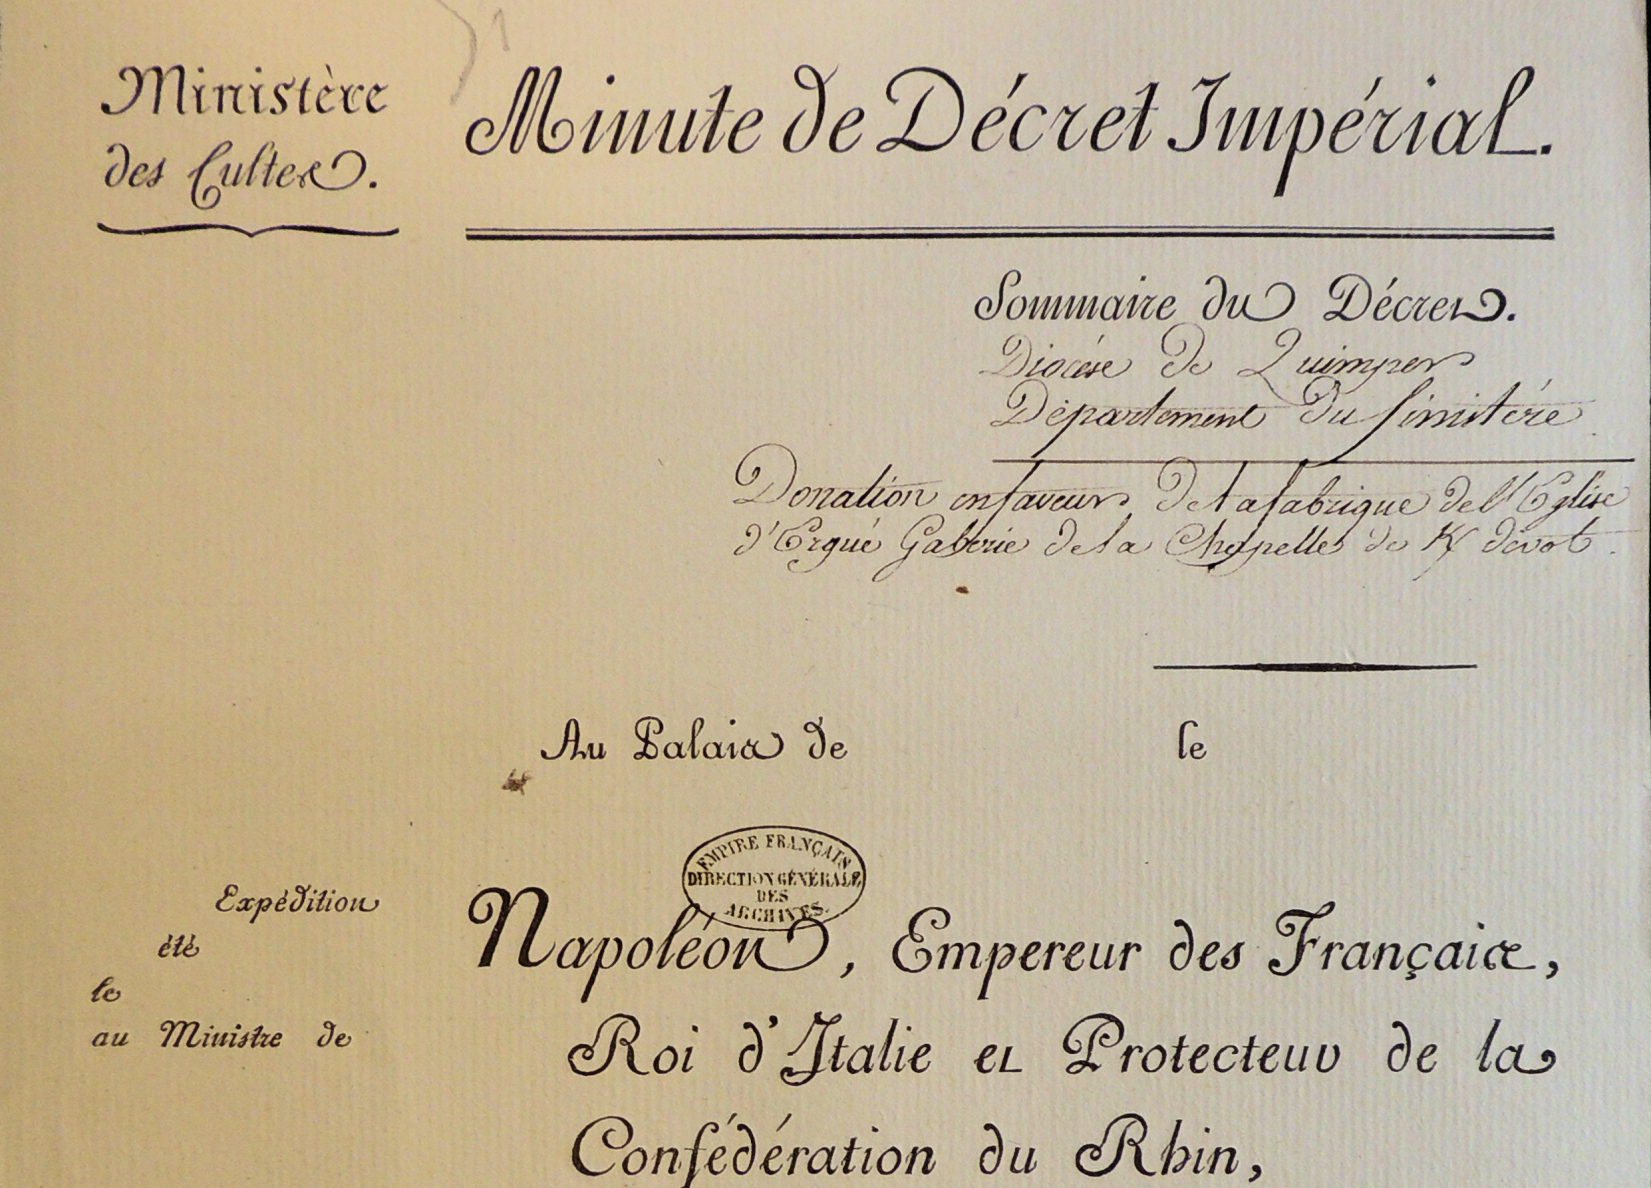 Ministère
des Cultes.
Minute de Décret Impérial.
Sommaire du Décret.
Diocèse de Quimper
Département du finistère
Donation en faveur de la fabrique de l'Eglise
d'Ergué Gaberie de la Chapelle de K/ dévot.
Au Palais de le
EMPIRE FRANÇAIS
DIRECTION GÉNÉRALE
DES
ARCHIVES.
Expédition
été
le
au Ministre de
Napoléon, Empereur des Français,
Roi d'Italie et Protecteur de la
Confédération du Rhin,